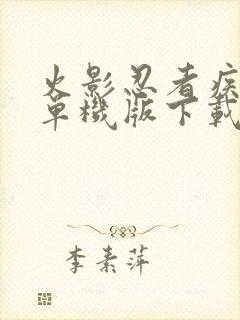 火影忍者疾
单機版下載
李素萍